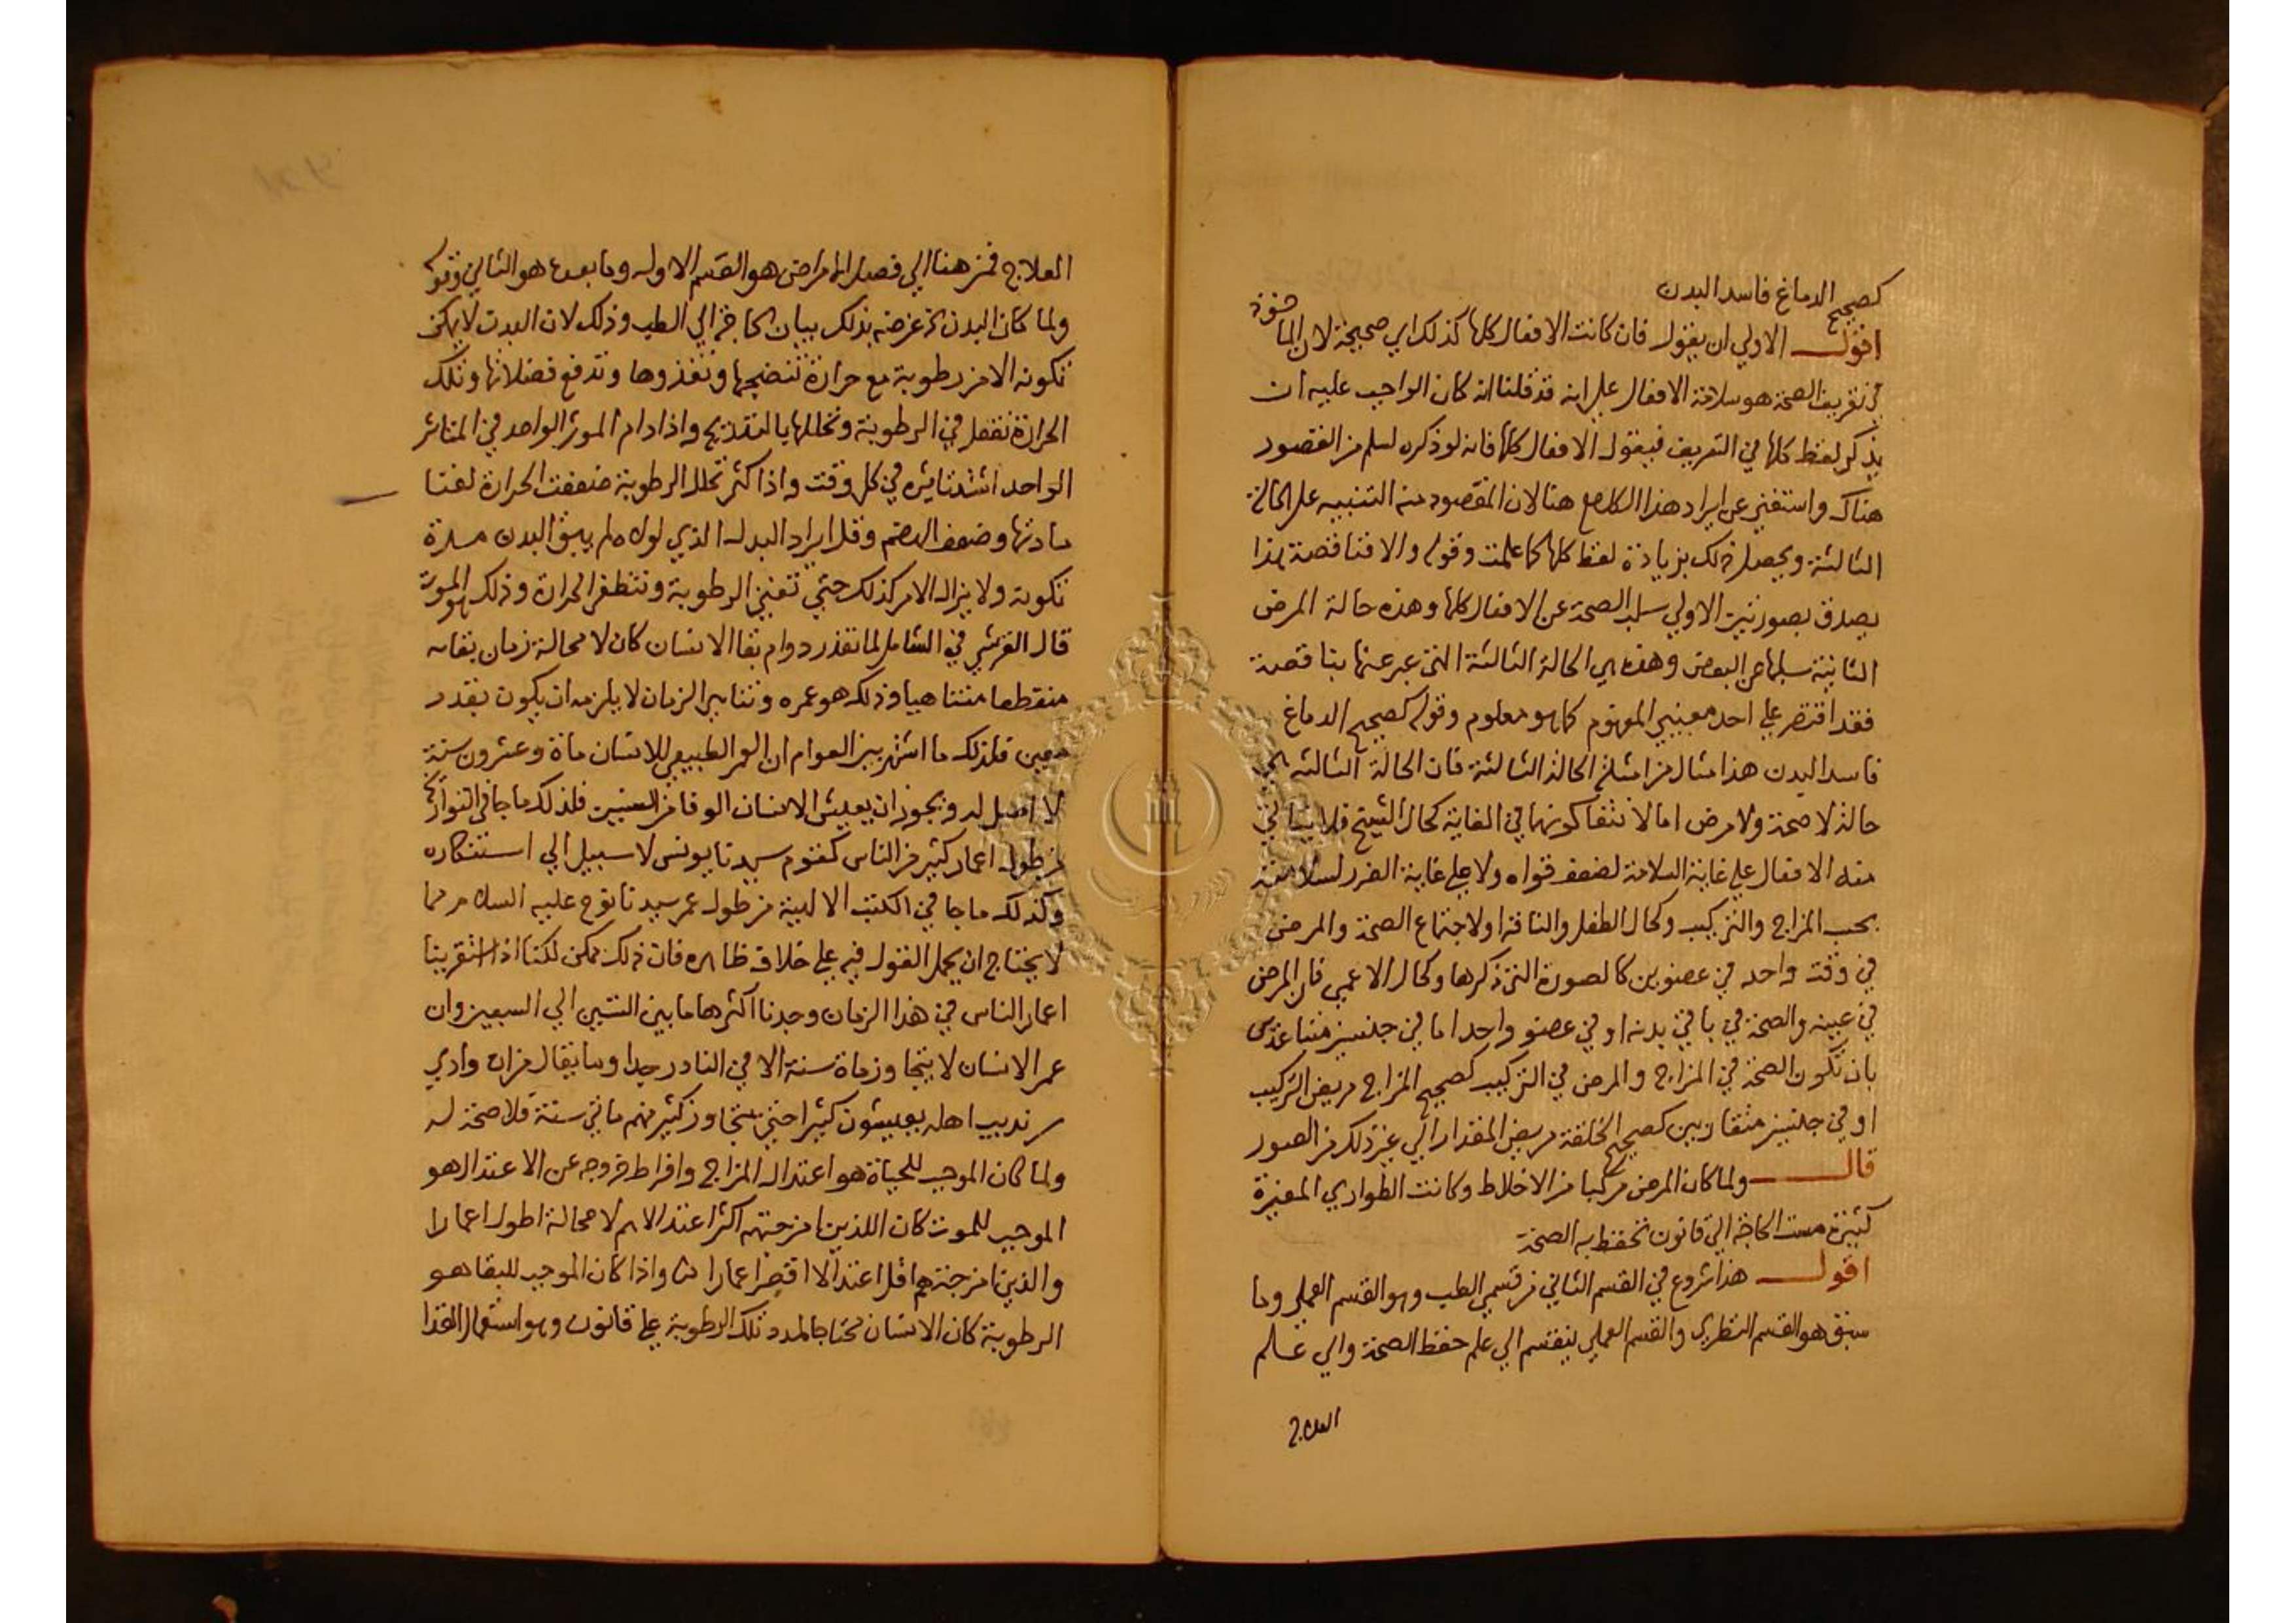 كصحيح الدماغ فاسد البدن
اقول الاولي ان يقول فان كانت الافعال كلها كذلك اي صحيحة لان الماخوذ
في تعريف الصحة هو سلامة الافعال علي انه قد قلنا انه كان الواجب عليه ان
يذكر لفظ كلها في التعريف فيقول الافعال كلها فانه لو ذكره لسلم من القصور
هناك واستغني عن ايراد هذا الكلام هنا لان المقصود منه التنبيه علي الحالة
الثالثة ويحصل ذلك بزيادة لفظ كلها كما علمت وقوله والا فناقصة هذا
يصدق بصورتين الاولي سلب الصحة عن الافعال كلها وهذه حالة المرض
الثانية سلبها عن البعض وهذه هي الحالة الثالثة التي عبر عنها بناقصة
فقد اقتصر علي احد معنيي المفهوم كما هو معلوم وقوله كصحيح الدماغ
فاسد البدن هذا مثال من امثلة الحالة الثالثة فان الحالة الثالثة هي
حالة لا صحة ولا مرض اما لانتفا كونهما في الغاية كحال الشيخ فلا يتاتي
منه الافعال علي غاية السلامة لضعف قواه ولا علي غاية الضرر لسلامته
بحسب المزاج والتركيب وكحال الطفل والناقه او لاجتماع الصحة والمرض
في وقت واحد في عضوين كالصورة التي ذكرها وكحال الاعمي فان المرض
في عينه والصحة في باقي بدنه او في عضو واحد اما في جنسين متباعدين
بان تكون الصحة في المزاج والمرض في التركيب كصحيح المزاج مريض التركيب
او في جنسين متقاربين كصحيح الخلقة مريض المقدار الي غير ذلك من الصور
قال ولما كان المرض مركبا من الاخلاط وكانت الطواري المغيرة
كثيرة مست الحاجة الي قانون تحفظ به الصحة
اقول هذا شروع في القسم الثاني من قسمي الطب وهو القسم العملي وما
سبق هو القسم النظري والقسم العملي ينقسم الي علم حفظ الصحة والي علم
العلاج
العلاج فمن هنا الي فصل الامراض هو القسم الاول وما بعده هو الثاني وقوله
ولما كان البدن الخ غرضه بذلك بيان الحاجة الي الطب وذلك لان البدن لا يمكن
تكونه الا من رطوبة مع حرارة تنضجها وتغذوها وتدفع فضلاتها وتلك
الحرارة تفعل في الرطوبة وتحللها بالتدريج واذا دام الموثر الواحد في المتاثر
الواحد اشتد تاثيره في كل وقت واذا كثر تحلل الرطوبة ضعفت الحرارة لفنا
مادتها وضعف الهضم وقل ايراد البدل الذي لولاه لم يبق البدن مدة
تكونه ولا يزال الامر كذلك حتي تفني الرطوبة وتنطفي الحرارة وذلك هو الموت
قال القرشي في الشامل لما تعذر دوام بقا الانسان كان لا محالة زمان بقائه
منقطعا متناهيا وذلك هو عمره وتناهي الزمان لا يلزمه ان يكون بقدر
معين فلذلك ما اشتهر بين العوام ان العمر الطبيعي للانسان ماة وعشرون سنة
لا اصل له ويجوز ان يعيش الانسان الوفا من السنين فلذلك ما جا في التواريخ
من طول اعمار كثير من الناس كقوم سيدنا يونس لا سبيل الي استنكاره
وكذلك ما جا في الكتب الالهية من طول عمر سيدنا نوح عليه السلام مما
لا يحتاج ان يحمل القول فيه علي خلاف ظاهره فان ذلك ممكن لكنا اذا استقرينا
اعمار الناس في هذا الزمان وجدنا اكثرها ما بين الستين الي السبعين وان
عمر الانسان لا يتجاوز ماة سنة الا في النادر جدا وما يقال من ان وادي
سرنديب اهله يعيشون كثيرا حتي يتجاوز كثير منهم مائتي سنة فلا صحة له
ولما كان الموجب للحياة هو اعتدال المزاج وافراط خروجه عن الاعتدال هو
الموجب للموت كان اللذين امزجتهم اكثر اعتدالا هم لا محالة اطول اعمارا
والذين امزجتهم اقل اعتدالا اقصر اعمارا واذا كان الموجب للبقا هو
الرطوبة كان الانسان محتاجا لمدد تلك الرطوبة علي قانون وهو استعمال الغذا